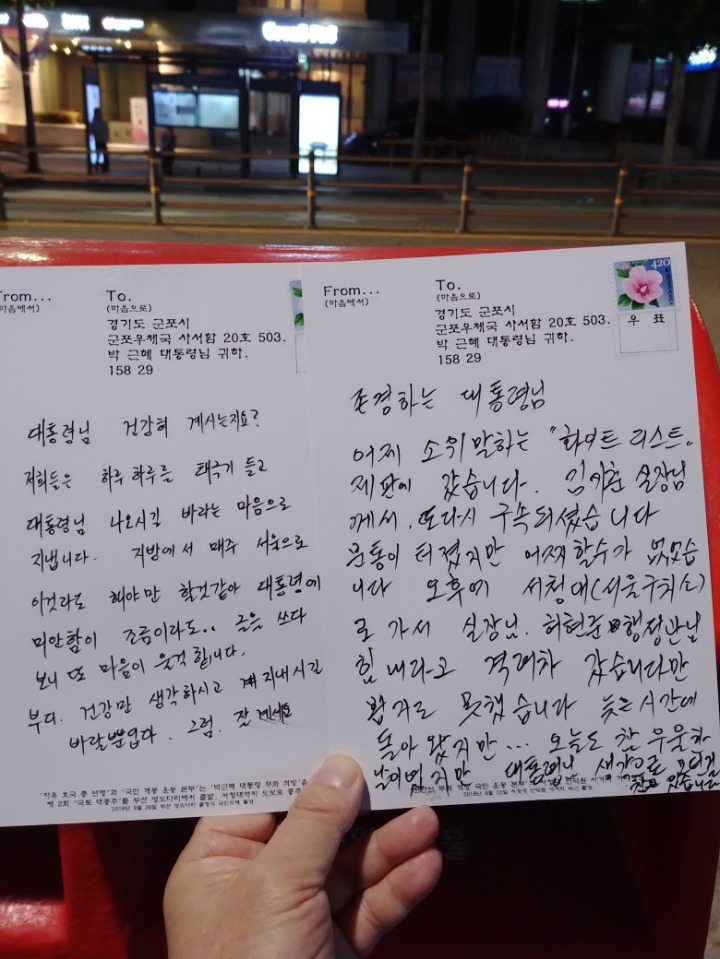 From...
(마음에서)
To.
(마음으로)
경기도 군포시
군포우체국 사서함 20호 503.
박 근혜 대통령님 귀하.
158 29
대통령님 건강히 계시는지요?
저희들은 하루 하루를 태극기 들고
대통령님 나오시길 바라는 마음으로
지냅니다. 지방에서 매주 서울으로
이것라도 해야만 할것같아 대통령에
미안함이 조금이라도.. 글을 쓰다
보니 또 마음이 울컥 합니다.
부디. 건강만 생각하시고 지내시길
바랄뿐입다. 그럼. 잘 계세요
From...
(마음에서)
To.
(마음으로)
경기도 군포시
군포우체국 사서함 20호 503.
박 근혜 대통령님 귀하.
158 29
420
우 표
존경하는 대통령님
어제 소위 말하는 "화이트 리스트"
재판이 갔습니다. 김기춘 실장님
께서. 또다시 구속되셨습니다
분통이 터졌지만 어찌할수가 없었습
니다 오후에 서청대(서울구치소)
로 가서 실장님. 허현준 행정관님
힘내라고 격려차 갔습니다만
뵙지도 못했습니다 늦은 시간에
돌아 왔지만... 오늘도 참 우울한
날이었지만 대통령님 생각으로
있습니다